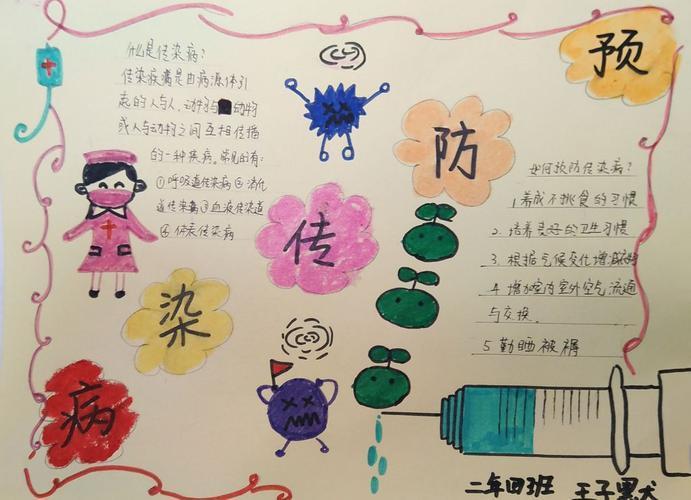 预
防
传
染
病
什么是传染病?
传染疾病是由病源体引
起的人与人、动物与动物
或人与动物之间互相传播
的一种疾病。常见的有:
①呼吸道传染病②消化
道传染病③血液传染道
④体表传染病
如何预防传染病?
1.养成不挑食的习惯
2.培养良好的卫生习惯
3.根据气候变化增减衣物
4.增加室内室外空气流通
与交换.
5.勤晒被褥
二年四班 王子